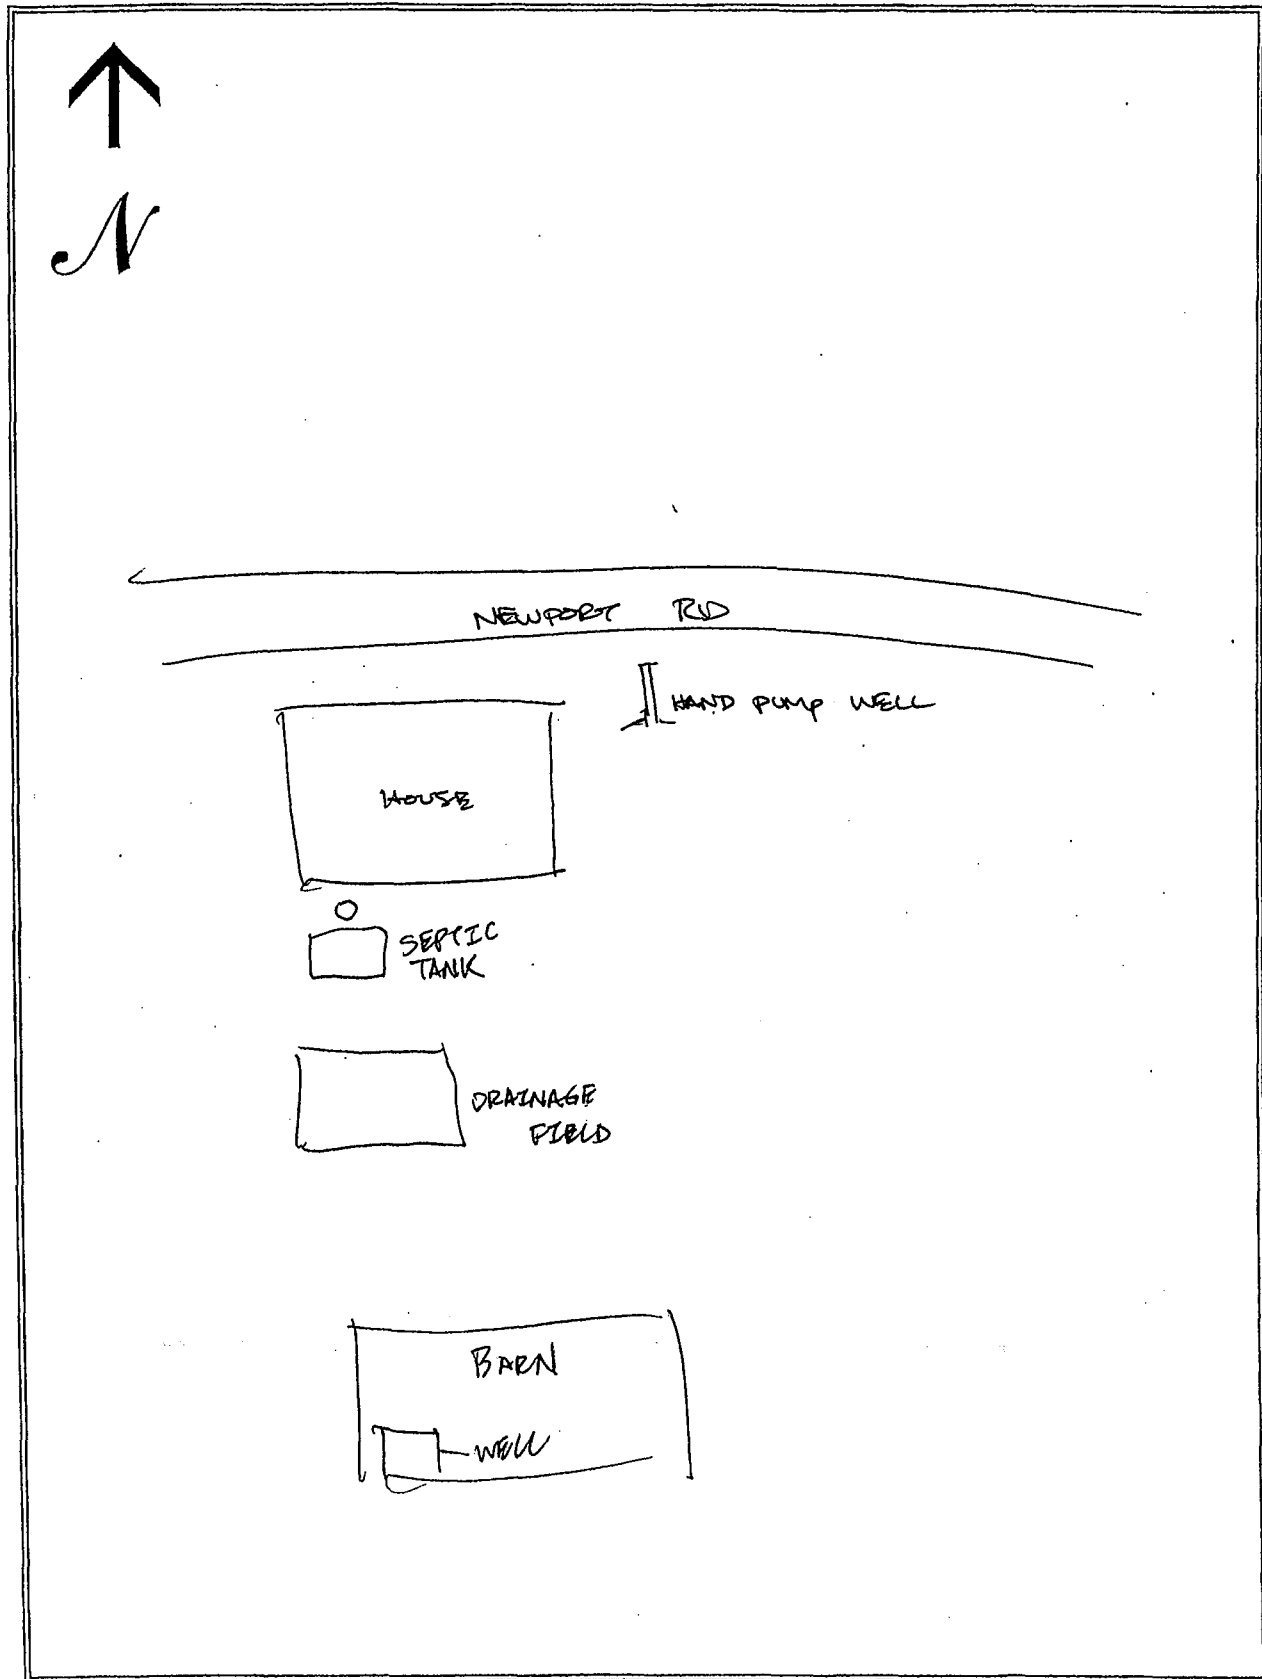 N
NEWPORT RD
HAND PUMP WELL
HOUSE
SEPTIC
TANK
DRAINAGE
FIELD
BARN
WELL